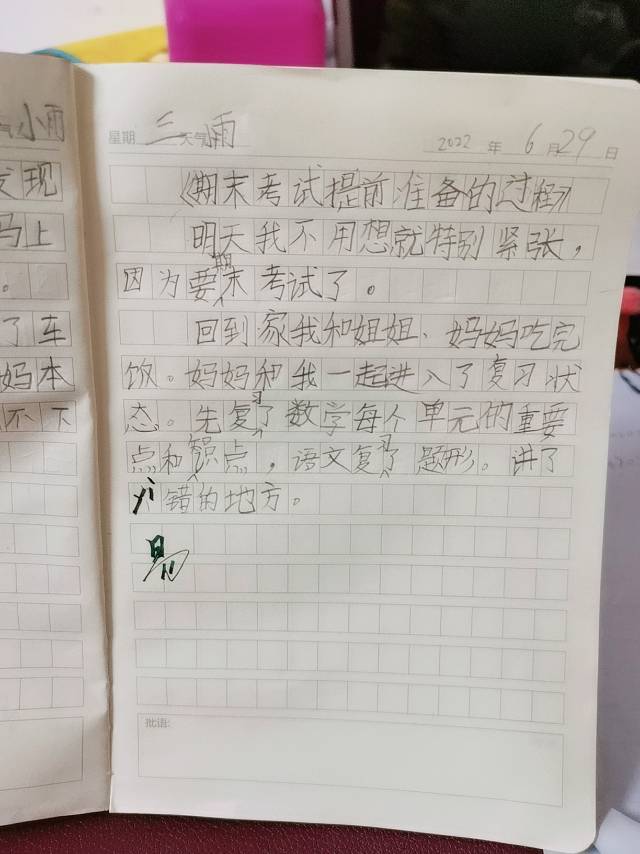 气 小雨
发现
马上
。
了车
妈本
不下
星期 三 天气 雨 2022 年 6 月 29 日
《期末考试提前准备的过程》
明天我不用想就特别紧张，
因为要期末考试了。
回到家我和姐姐、妈妈吃完
饭。妈妈和我一起进入了复习状
态。先复习了数学每个单元的重要
点和知识点，语文复习了题形。讲了
易错的地方。
易
批语: